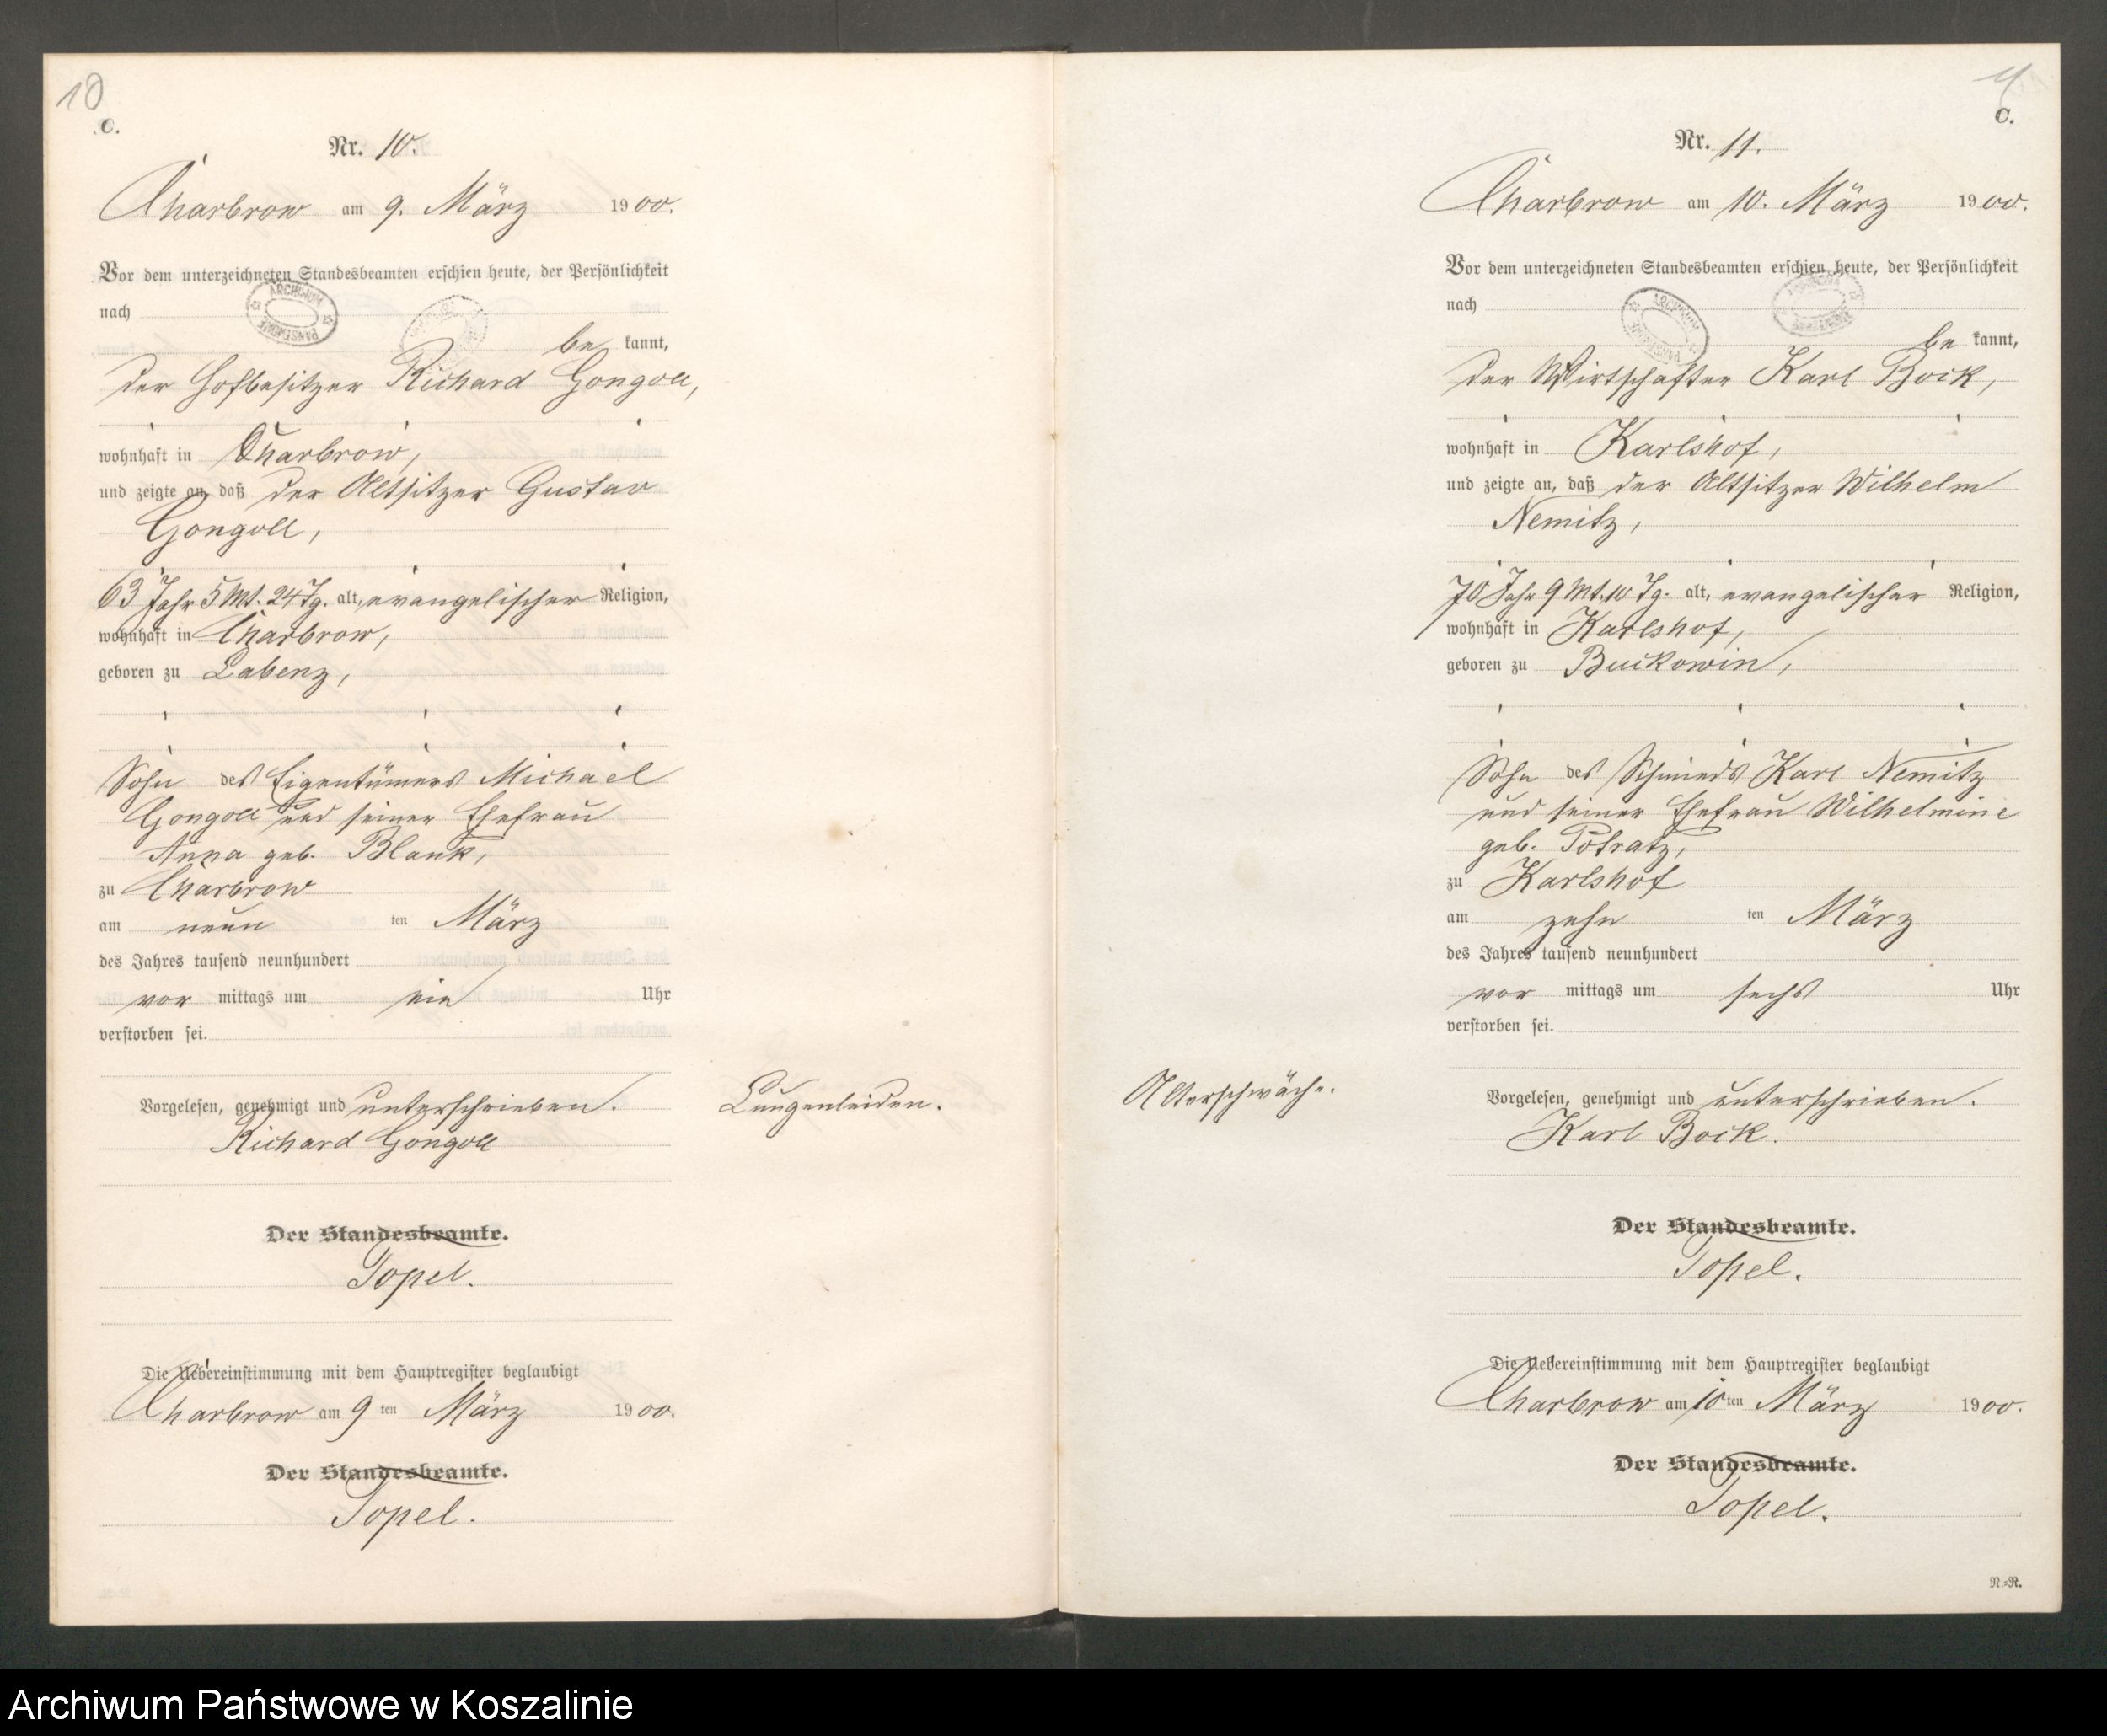 10
C.
Nr. 10.
Charbrow am 9. März 1900.
Vor dem unterzeichneten Standesbeamten erschien heute, der Persönlichkeit
nach
be kannt,
der Hofbesitzer Richard Gongoll,
wohnhaft in Charbrow,
und zeigte an, daß der Altsitzer Gustav
Gongoll,
63 Jahr 5 Mt. 24 Tg. alt, evangelischer Religion,
wohnhaft in Charbrow,
geboren zu Labenz,
Sohn des Eigentümers Michael
Gongoll und seiner Ehefrau
Anna geb. Blank,
zu Charbrow
am neun ten März
des Jahres tausend neunhundert
vor mittags um ein Uhr
verstorben sei.
Vorgelesen, genehmigt und unterschrieben.
Richard Gongoll
Lungenleiden.
Der Standesbeamte.
Topel.
Die Uebereinstimmung mit dem Hauptregister beglaubigt
Charbrow am 9 ten März 1900.
Der Standesbeamte.
Topel.
11
C.
Nr. 11.
Charbrow am 10. März 1900.
Vor dem unterzeichneten Standesbeamten erschien heute, der Persönlichkeit
nach
be kannt,
der Wirtschafter Karl Bock,
wohnhaft in Karlshof,
und zeigte an, daß der Altsitzer Wilhelm
Nemitz,
70 Jahr 9 Mt. 10 Tg. alt, evangelischer Religion,
wohnhaft in Karlshof,
geboren zu Buckowin,
Sohn des Schmieds Karl Nemitz
und seiner Ehefrau Wilhelmine
geb. Potratz,
zu Karlshof
am zehn ten März
des Jahres tausend neunhundert
vor mittags um sechs Uhr
verstorben sei.
Alterschwäche.
Vorgelesen, genehmigt und unterschrieben.
Karl Bock.
Der Standesbeamte.
Topel.
Die Uebereinstimmung mit dem Hauptregister beglaubigt
Charbrow am 10 ten März 1900.
Der Standesbeamte.
Topel.
N.-R.
Archiwum Państwowe w Koszalinie